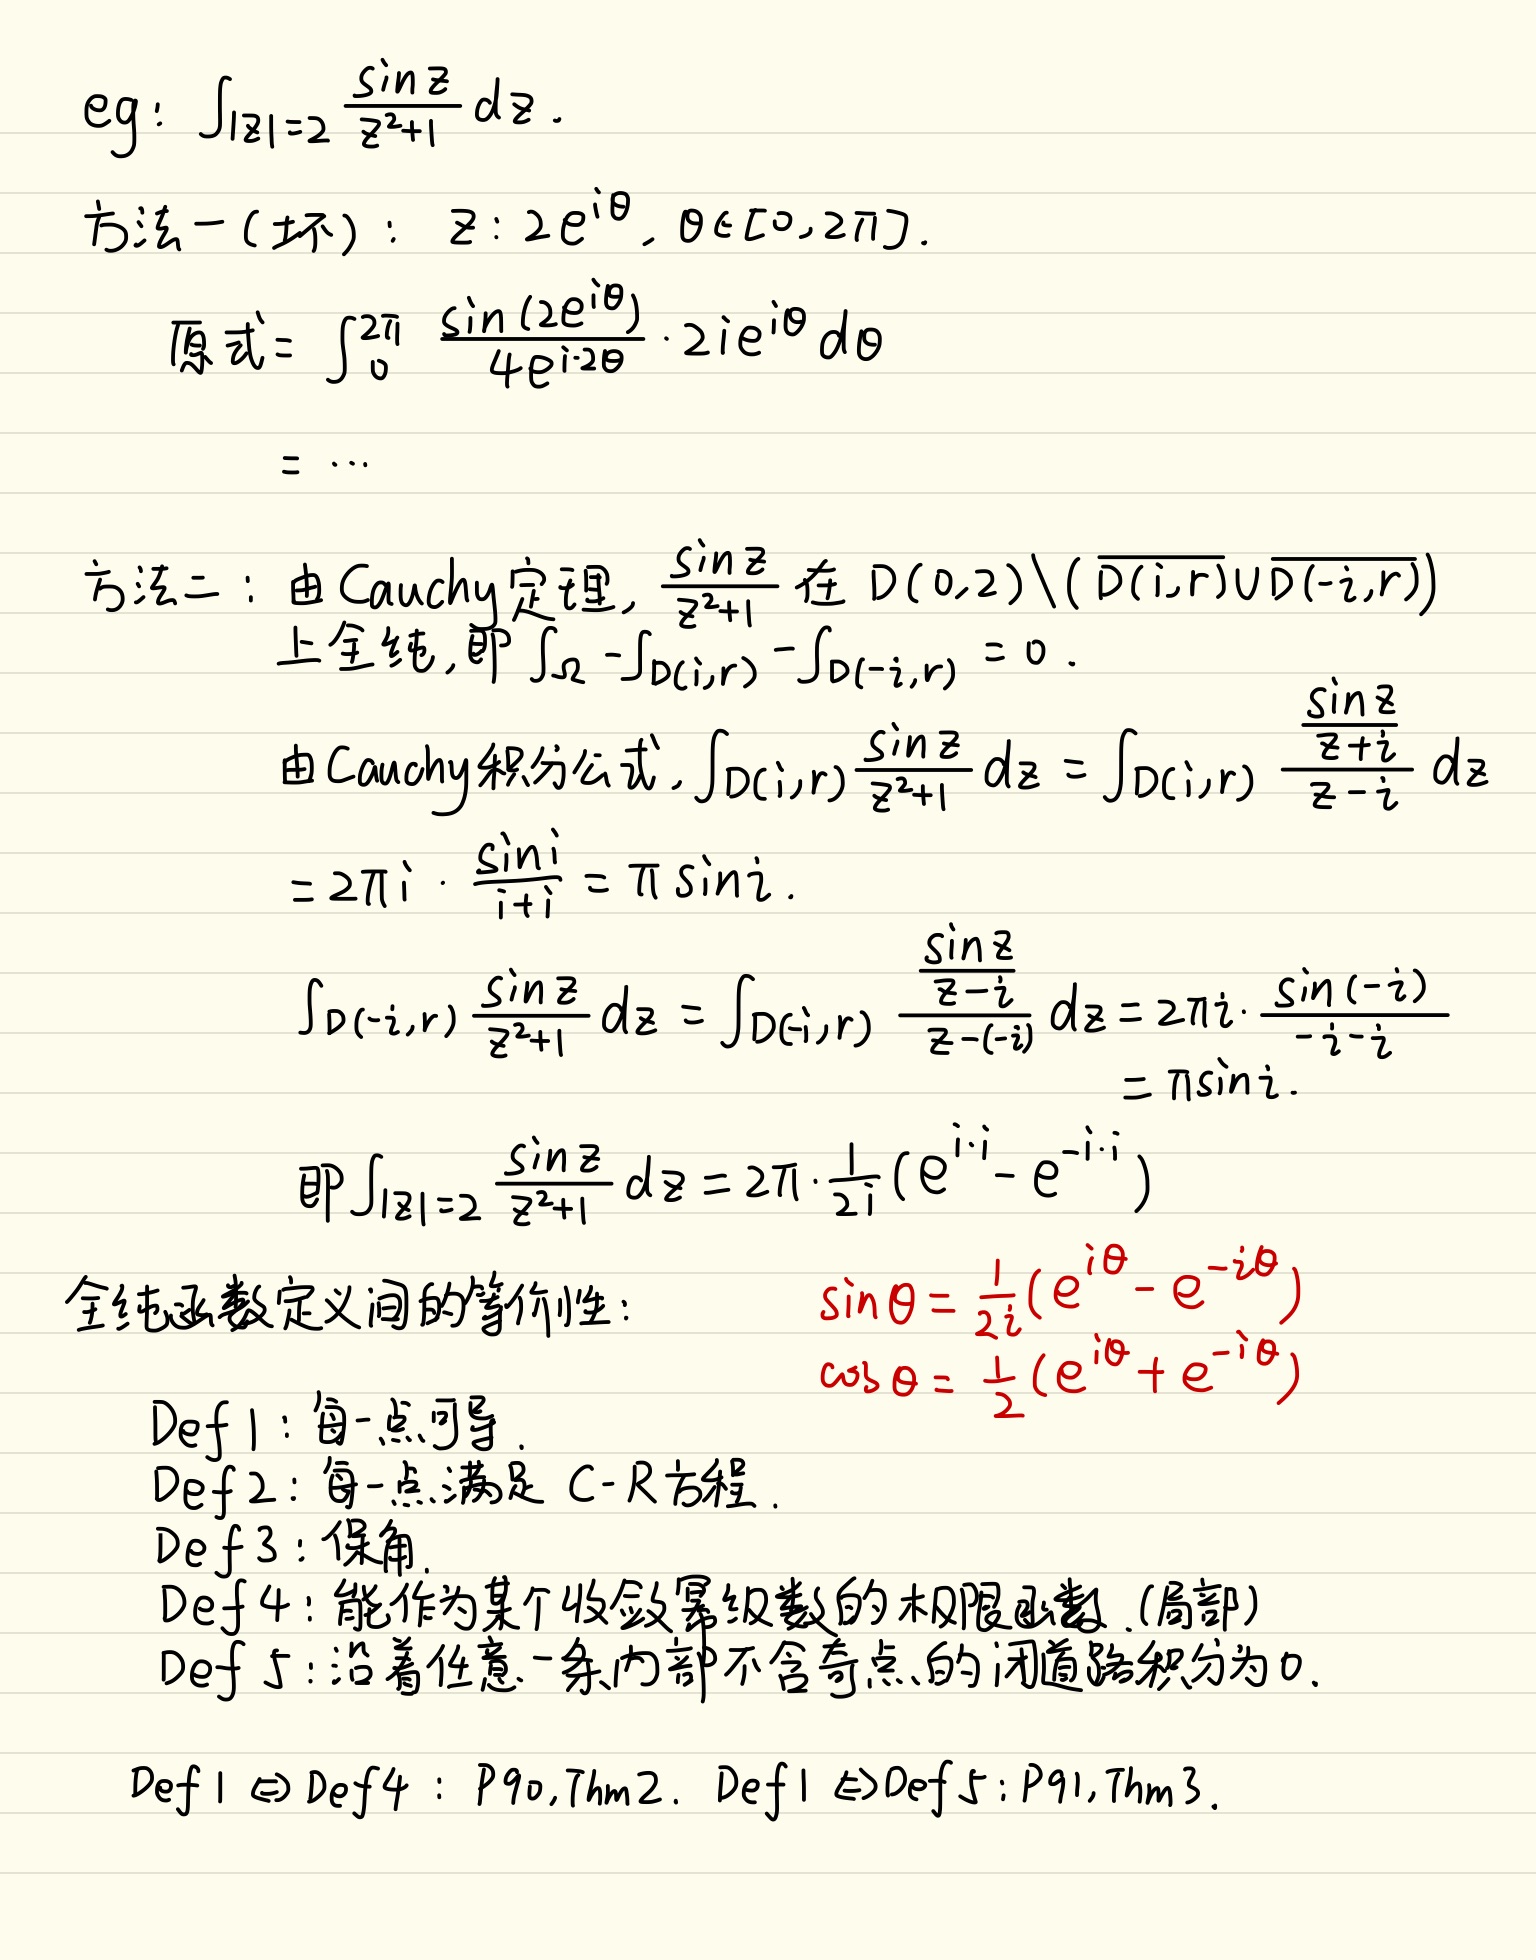 eg: ∫_{|z|=2} \frac{sin z}{z²+1} dz.
方法一(坏): z: 2e^{iθ}, θ∈[0,2π].
原式= ∫_0^{2π} \frac{sin(2e^{iθ})}{4e^{i·2θ}} · 2ie^{iθ} dθ
= …
方法二: 由Cauchy定理, \frac{sin z}{z²+1} 在 D(0,2)\(\overline{D(i,r)}∪\overline{D(-i,r)})
上全纯, 即 ∫_Ω - ∫_{D(i,r)} - ∫_{D(-i,r)} = 0.
由Cauchy积分公式, ∫_{D(i,r)} \frac{sin z}{z²+1} dz = ∫_{D(i,r)} \frac{\frac{sin z}{z+i}}{z-i} dz
= 2πi · \frac{sin i}{i+i} = π sin i.
∫_{D(-i,r)} \frac{sin z}{z²+1} dz = ∫_{D(-i,r)} \frac{\frac{sin z}{z-i}}{z-(-i)} dz = 2πi · \frac{sin(-i)}{-i-i}
= π sin i.
即 ∫_{|z|=2} \frac{sin z}{z²+1} dz = 2π · \frac{1}{2i} (e^{i·i} - e^{-i·i})
全纯函数定义间的等价性:
sinθ = \frac{1}{2i} (e^{iθ} - e^{-iθ})
cosθ = \frac{1}{2} (e^{iθ} + e^{-iθ})
Def 1: 每一点可导.
Def 2: 每一点满足 C-R方程.
Def 3: 保角.
Def 4: 能作为某个收敛幂级数的极限函数.(局部)
Def 5: 沿着任意一条内部不含奇点的闭道路积分为0.
Def 1 ⇔ Def 4: P90, Thm 2. Def 1 ⇔ Def 5: P91, Thm 3.